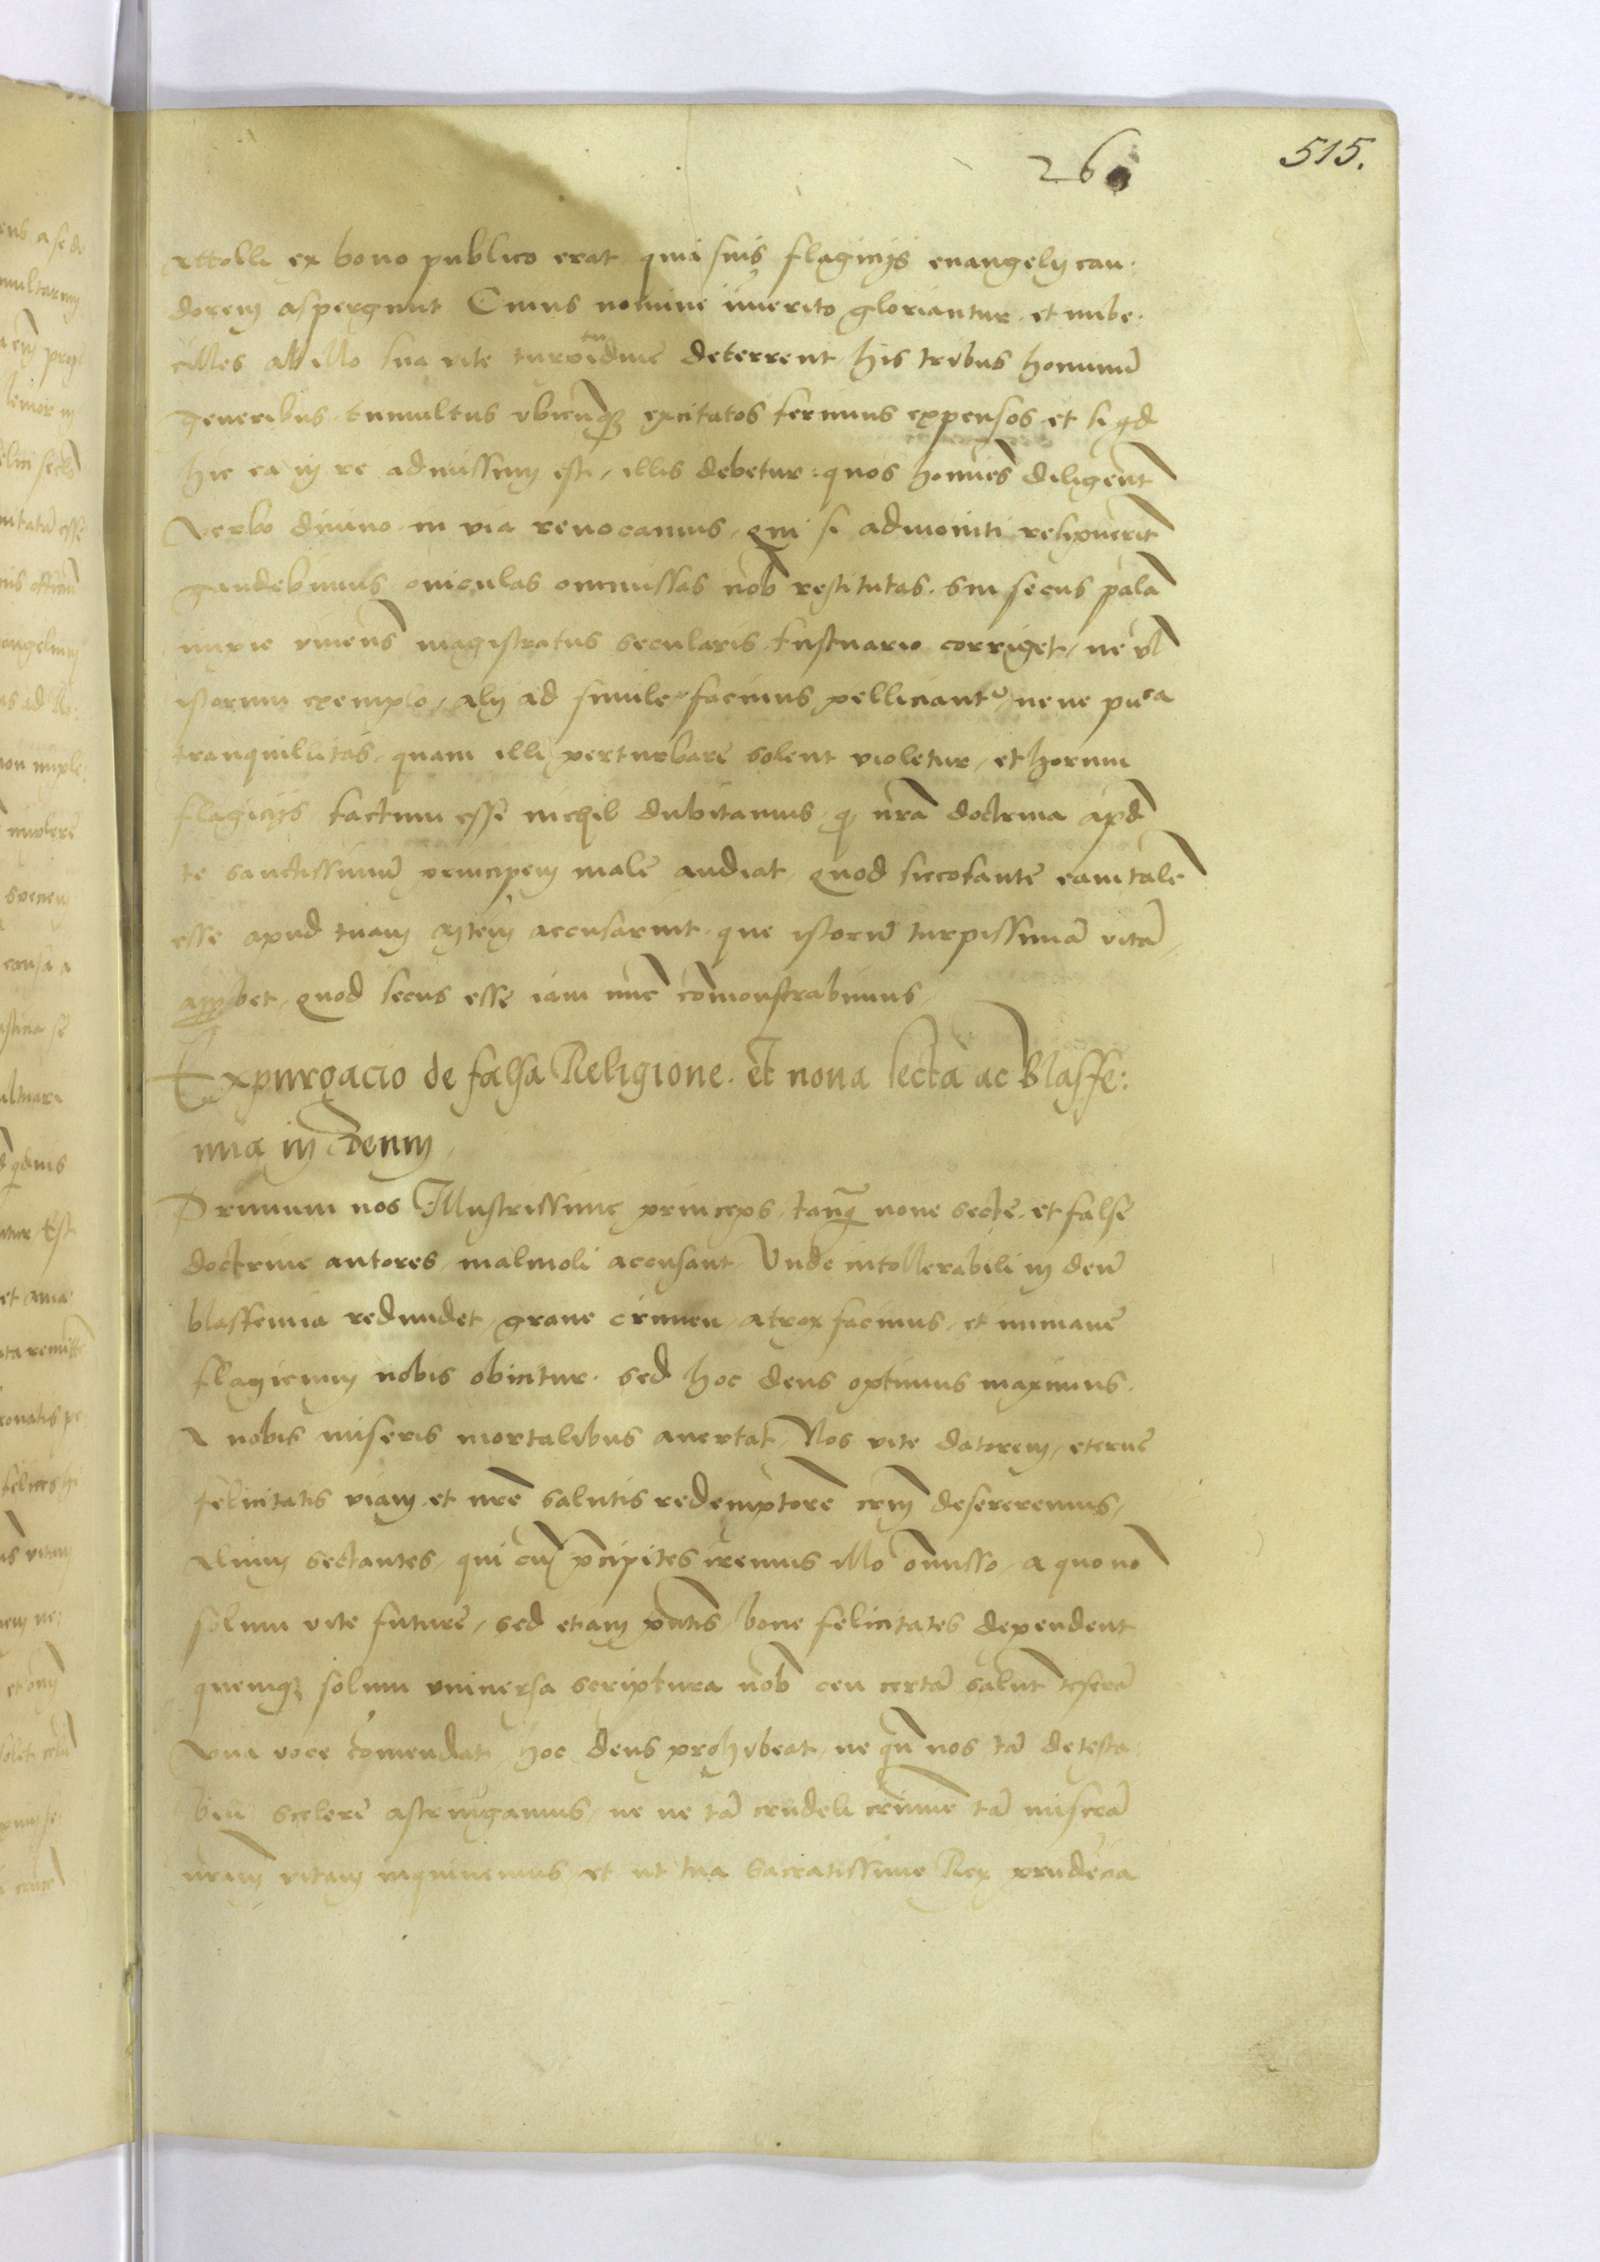 260
515.
attolli ex bono publico erat qui suis flagicijs euangelij can⸗
dorem aspergunt Cuius nomine imerito gloriantur et imbe⸗
cilles ab illo sua vite turpitudine deterrent his tribus hominum̄
generibus tumultus vbicunq; excitatos ferimus expensos et si qd
hic ea in re admissum est, illis debetur: quos hōmes diligent
verbo diuino in via reuocamus, qui si admoniti resipuerit
gaudebimus ouiculas ommissas nob restitutas. Sin secus palā
impie viuens magistratus secularis fustuario corriget, ne vl
istorum exemplo, alij ad simile facinus pelliciant, neue puca
tranquilitas quam illi perturbare solent violetur, et horum
flagicijs factum esse nichil dubitamus q nra doctrina apd
te sanctissimū principem male audiat quod sicofante eam talē
esse apud tuam mtem accusarint que istorū turpissimā vitā
approbet, quod secus esse iam nūc cōmonstrabimus,
Expurgacio de falsa Religione. et noua secta ac Blasfe:
mia in deum,
Primum nos Illustrissime princeps, tanq noue secte et false
doctrine autores malmoli accusant Vnde intollerabili in deū
blasfemia redundet, graue crimen, atrox facinus, et inmane
flagicium nobis obicitur. sed hoc deus optimus maximus.
A nobis miseris mortalibus auertat, Nos vite datorem, eterne
felicitatis viam et nre salutis redemptorē crm desereremus,
Alium sectantes, qui cū pcipites iremus illo omisso, a quo nō
solum vite future, sed etiam pntis bone felicitates dependent
quemq; solum vniuersa scriptura nob ceu certā salut teserā
vna voce cōmendat, hoc deus prohibeat, ne qn nos tā detesta⸗
bili scelere astringamus, ne ue tā crudeli crimine tā miserā
nram vitam inquinemus, et ut tua Sacratissime Rex prudēcia